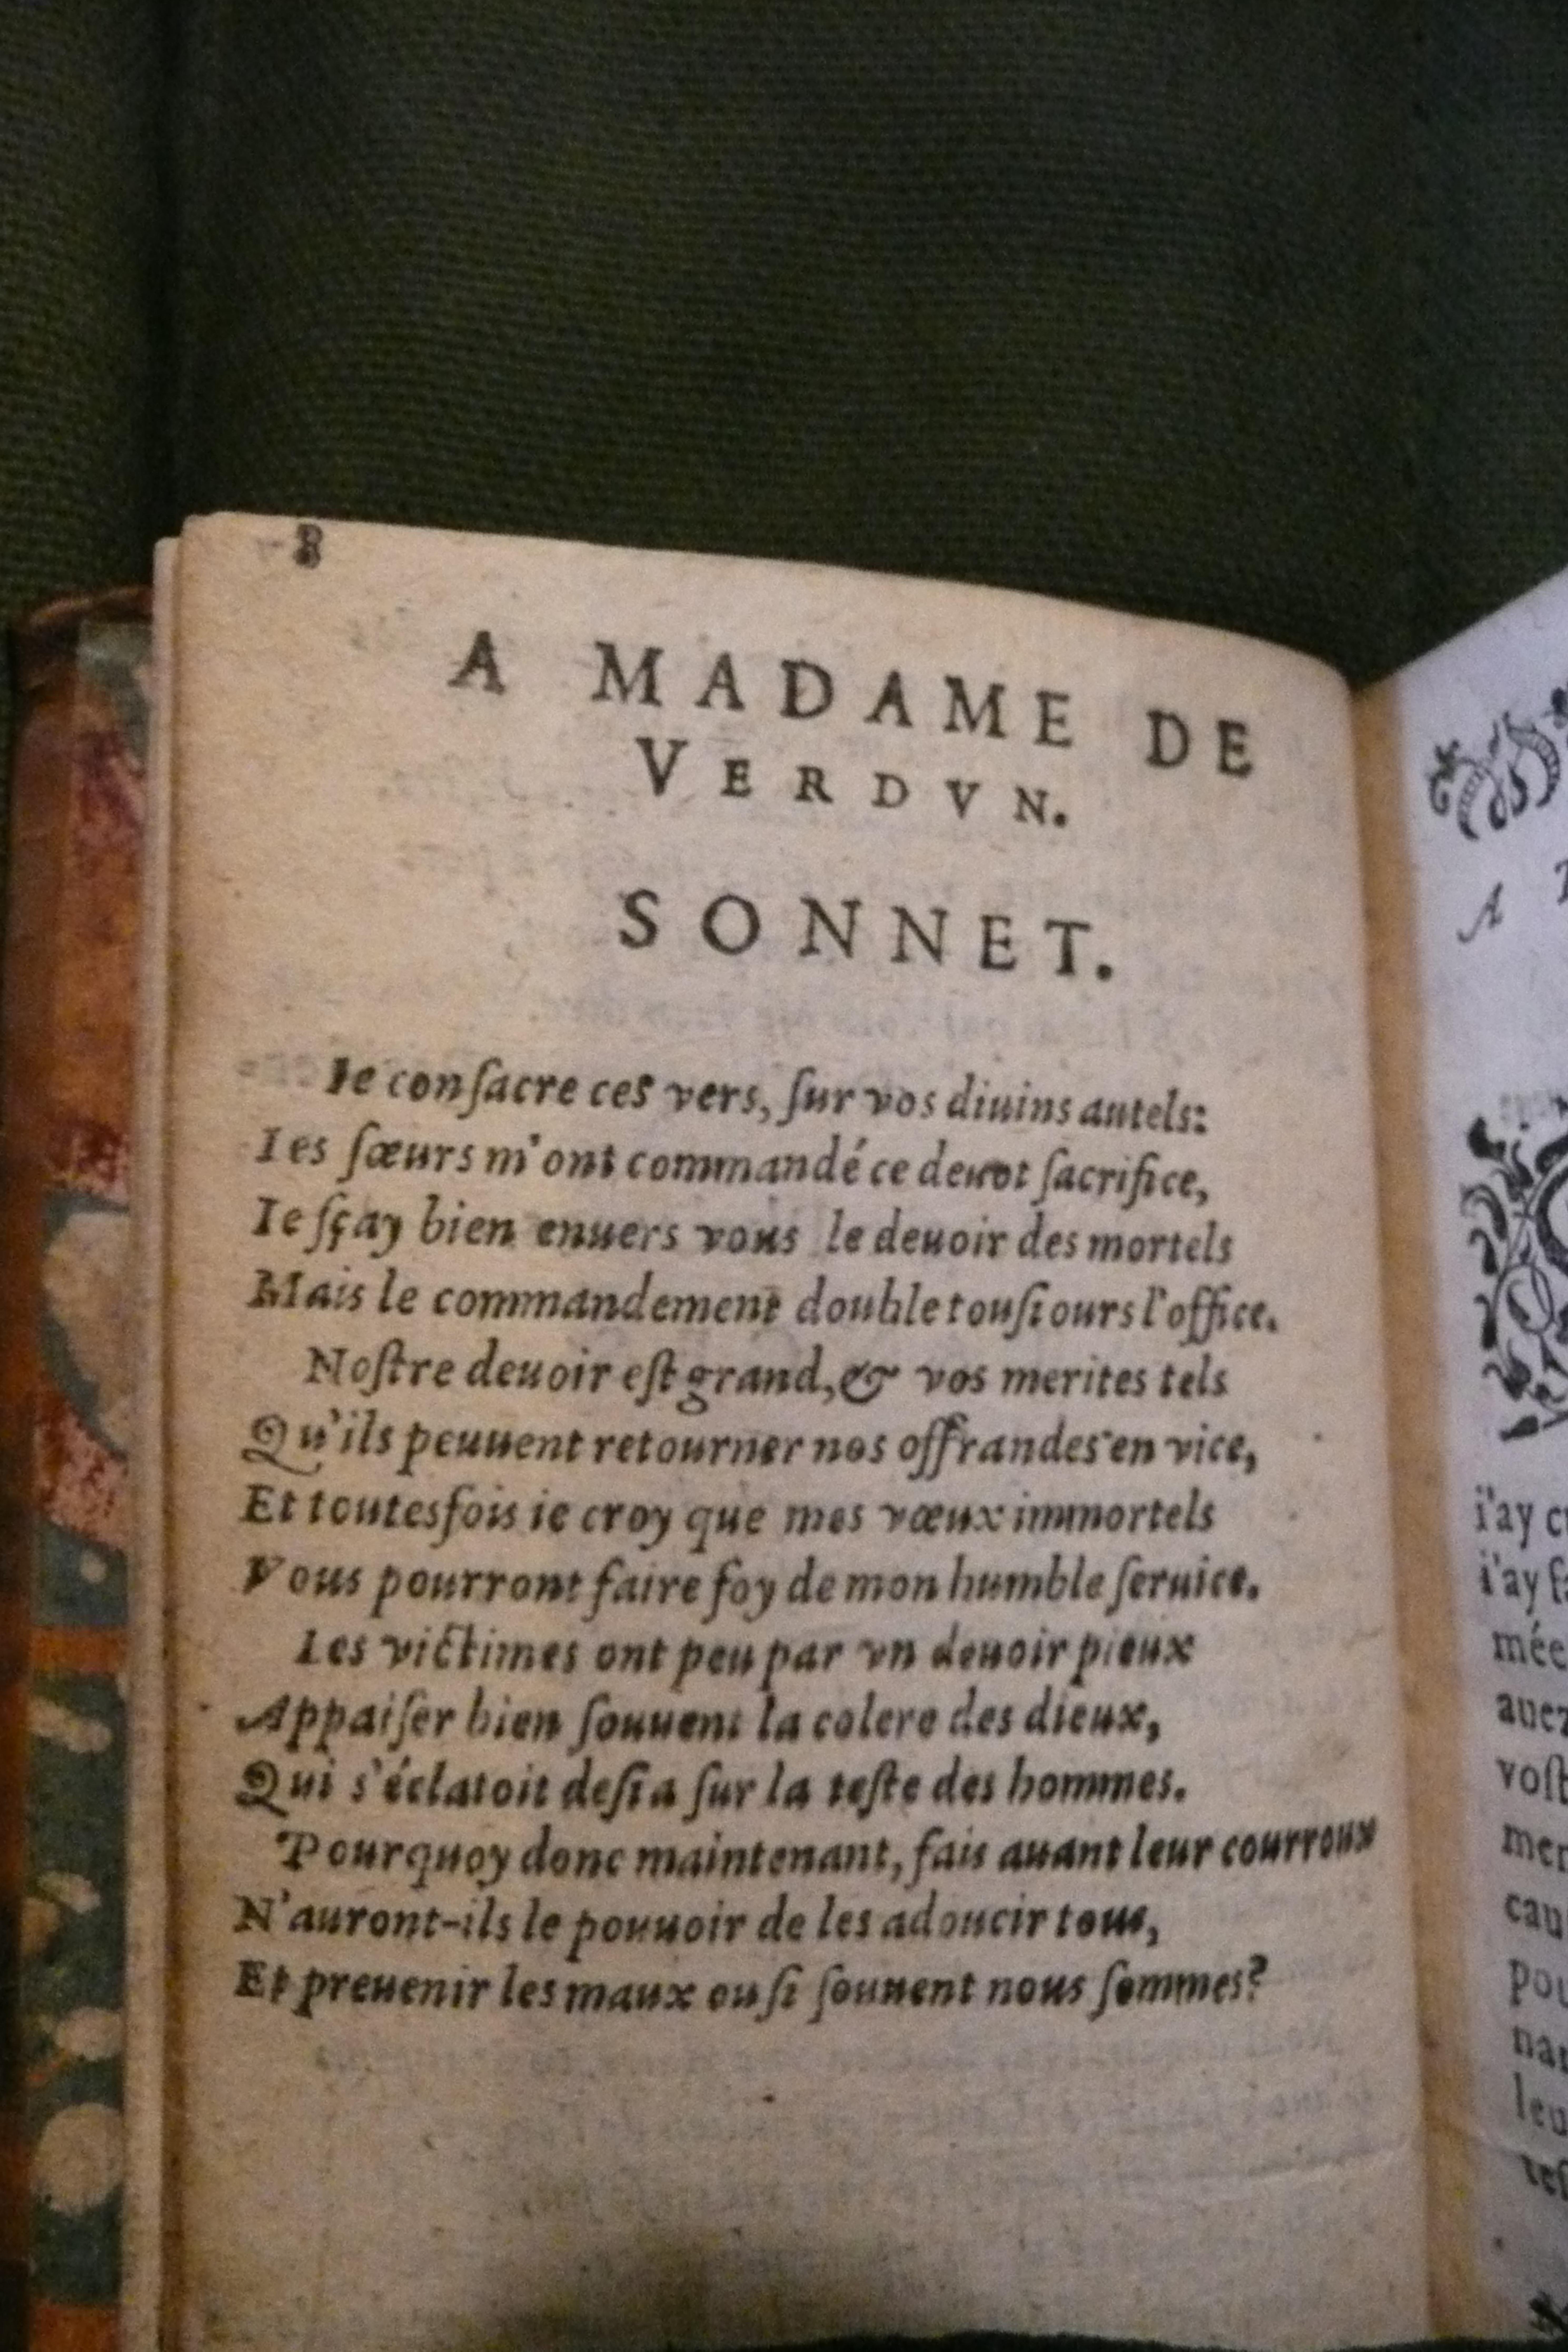 8
A MADAME DE
VERDVN.
SONNET.
Ie conſacre ces vers, ſur vos diuins autels:
Les ſœurs m'ont commandé ce deuot ſacrifice,
Ie ſçay bien enuers vous le deuoir des mortels
Mais le commandement double touſiours l'office.
Noſtre deuoir eſt grand, & vos merites tels
Qu'ils peuuent retourner nos offrandes en vice,
Et toutesfois ie croy que mes vœux immortels
Vous pourront faire foy de mon humble ſeruice.
Les victimes ont peu par vn deuoir pieux
Appaiſer bien ſouuent la colere des dieux,
Qui s'éclatoit deſia ſur la teſte des hommes.
Pourquoy donc maintenant, fais auant leur courroux
N'auront-ils le pouuoir de les adoucir tous,
Et preuenir les maux ou ſi ſouuent nous ſommes?
A
i'ay
i'ay